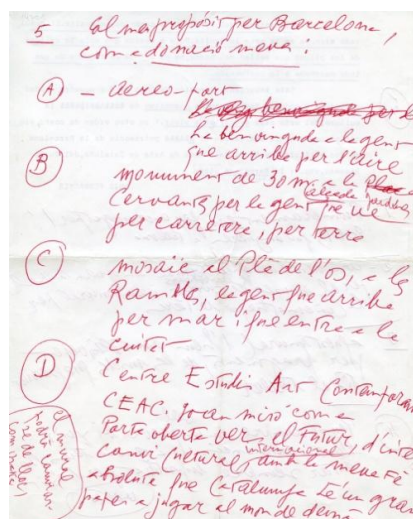 5 El meu propòsit per Barcelona,
com a donació meva:
A – aereo-port
La benvinguda a la gent
que arriba per l'aire
B monument de 30 m. a la
alçada jardins
Cervantes per la gent que ve
per carretera, per terra
C mosaic al Pla de l'os, a les
Rambles, la gent que arriba
per mar i que entra a la
ciutat
D Centre Estudis Art Contemporani
CEAC. Joan miró com a
Porta oberta vers el Futur, d'inter
canvi cultural internacional, amb la meva Fe
absoluta que Catalunya té un gran
paper a jugar al mon de demà
el mural